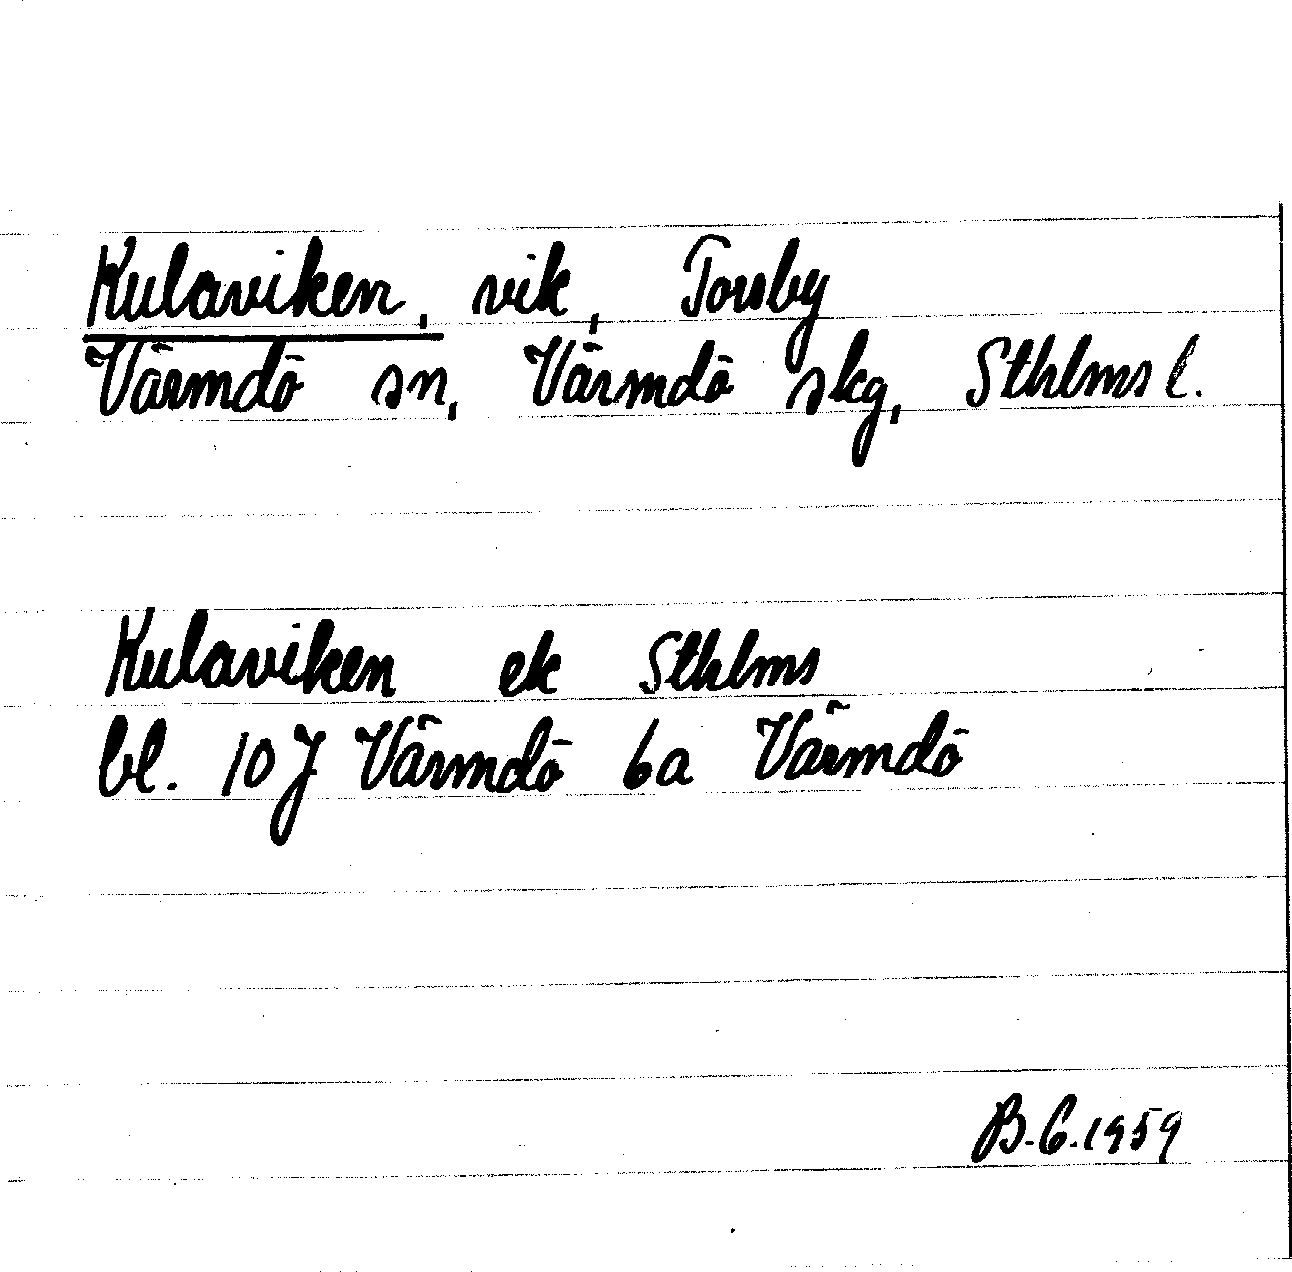 Kulaviken, vik, Torsby
Värmdö sn, Värmdö skg, Sthlms l.
Kulaviken ek Sthlms
bl. 10 J Värmdö 6a Värmdö
B.G.1959